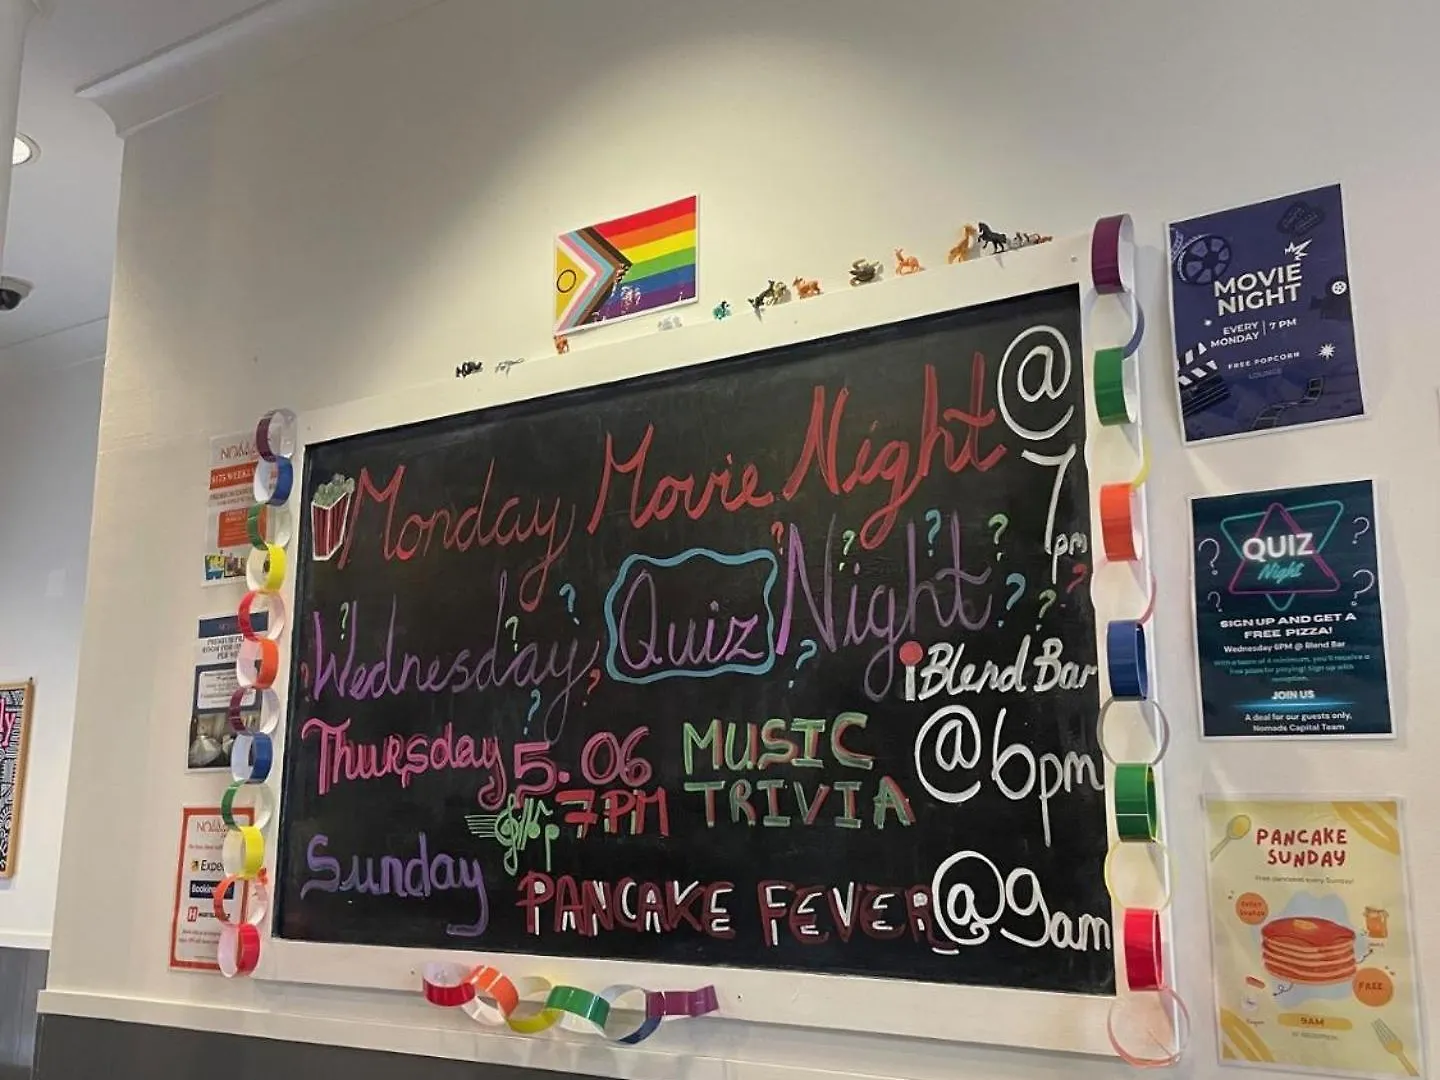 Monday Movie Night @
7pm
Wednesday Quiz Night
Blend Bar
@6pm
Thursday 5.06 MUSIC
7PM TRIVIA
Sunday PANCAKE FEVER @9am
MOVIE
NIGHT
EVERY
MONDAY
7 PM
FREE POPCORN
LOUNGE
QUIZ
Night
SIGN UP AND GET A
FREE PIZZA!
Wednesday 6PM @ Blend Bar
with a team of 4 minimum, you'll receive a
free pizza for playing! Sign up with
reception.
JOIN US
A deal for our guests only,
Nomads Capital Team
PANCAKE
SUNDAY
Free pancakes every Sunday!
FREE
9AM
$175 WEEKLY